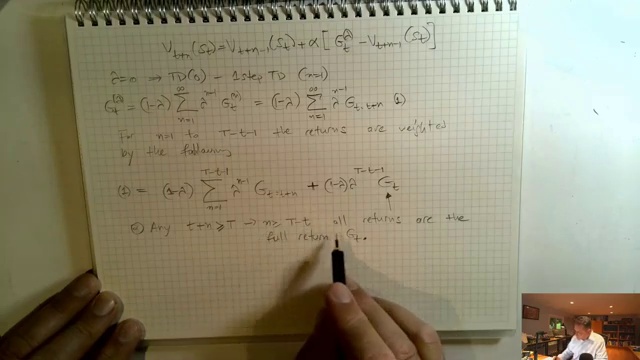 V_{t+n}(S_t) = V_{t+n-1}(S_t) + α[G_t^{(λ)} - V_{t+n-1}(S_t)]
λ=0 ⇒ TD(0) - 1 step TD (n=1)
G_t^{(λ)} = (1-λ) ∑_{n=1}^{∞} λ^{n-1} G_t^{(n)} = (1-λ) ∑_{n=1}^{∞} λ^{n-1} G_{t:t+n} (1)
For n=1 to T-t-1 the returns are weighted
by the following
(1) = (1-λ) ∑_{n=1}^{T-t-1} λ^{n-1} G_{t:t+n} + (1-λ) λ^{T-t-1} G_t
Any t+n ≥ T → n ≥ T-t all returns are the
full return G_t.